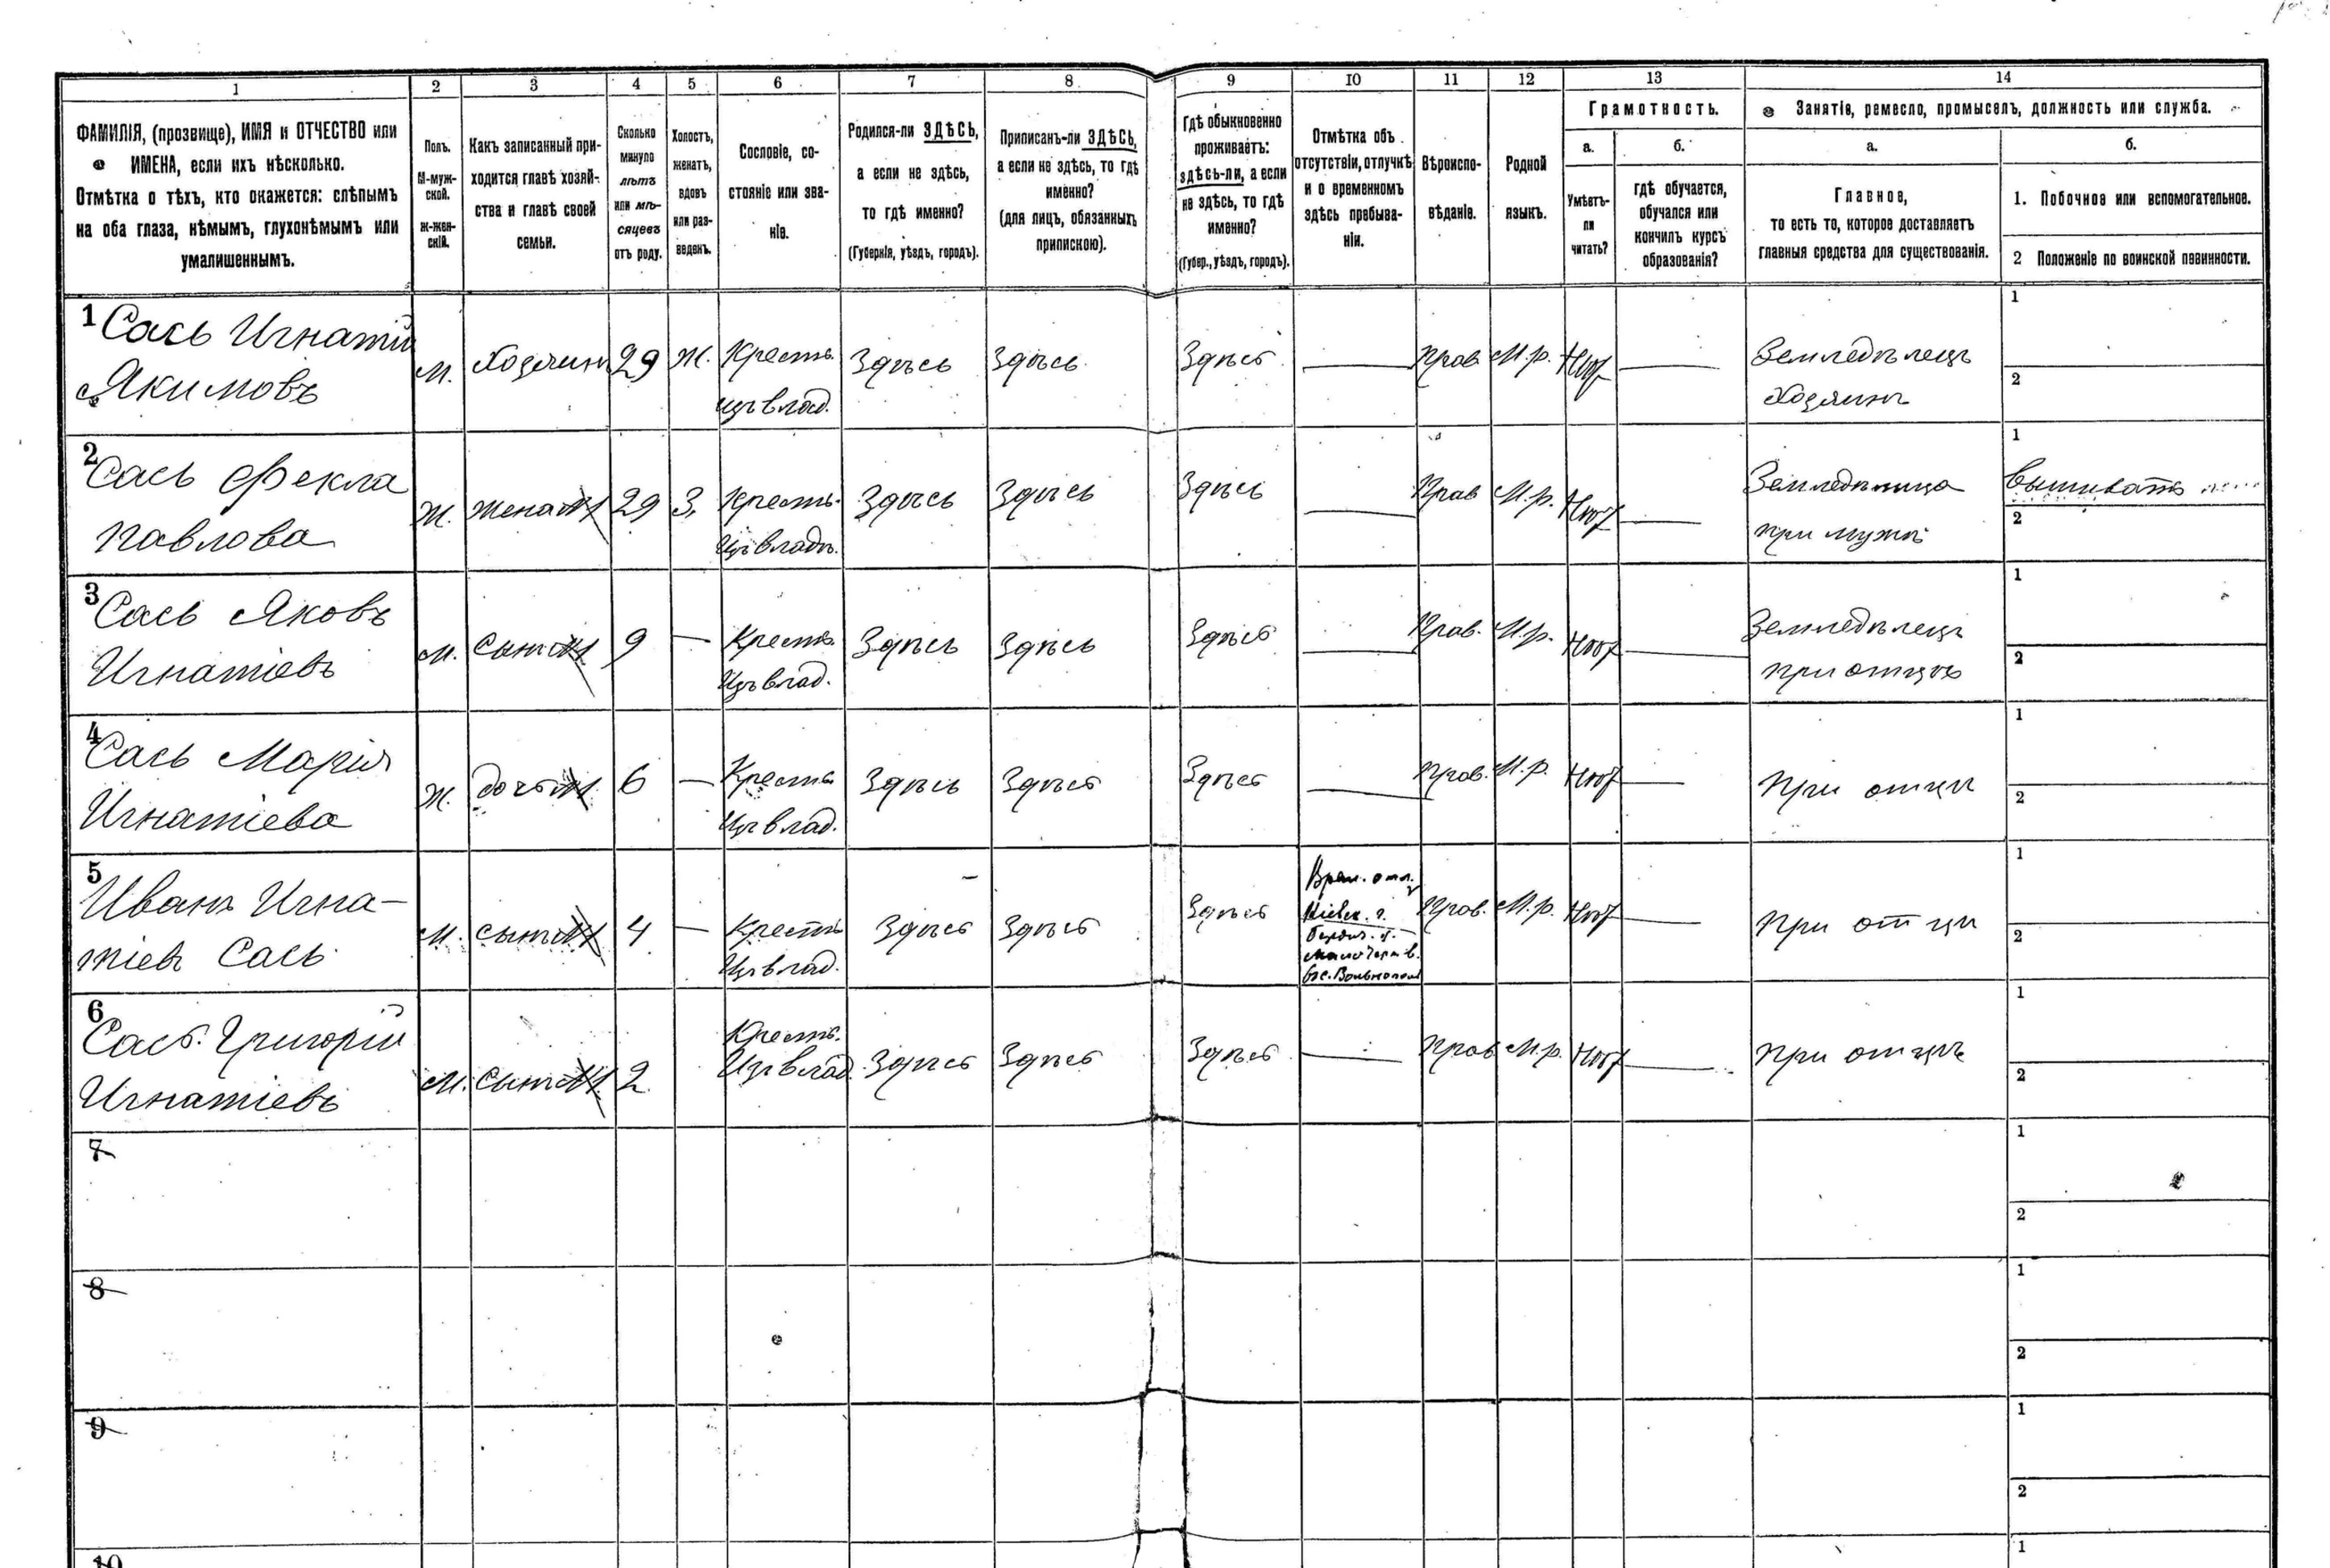 1
2
3
4
5
6
7
8
9
10
11
12
13
14
ФАМИЛІЯ, (прозвище), ИМЯ и ОТЧЕСТВО или
ИМЕНА, если ихъ нѣсколько.
Отмѣтка о тѣхъ, кто окажется: слѣпымъ
на оба глаза, нѣмымъ, глухонѣмымъ или
умалишеннымъ.
Полъ.
М-муж-
ской.
Ж-жен-
скій.
Какъ записанный при-
ходится главѣ хозяй-
ства и главѣ своей
семьи.
Сколько
минуло
лѣтъ
или мѣ-
сяцевъ
отъ роду.
Холостъ,
женатъ,
вдовъ
или раз-
веденъ.
Сословіе, со-
стояніе или зва-
ніе.
Родился-ли ЗДѢСЬ,
а если не здѣсь,
то гдѣ именно?
(Губернія, уѣздъ, городъ).
Приписанъ-ли ЗДѢСЬ,
а если не здѣсь, то гдѣ
именно?
(для лицъ, обязанныхъ
припискою).
Гдѣ обыкновенно
проживаетъ:
здѣсь-ли, а если
не здѣсь, то гдѣ
именно?
(Губер., уѣздъ, городъ).
Отмѣтка объ
отсутствіи, отлучкѣ
и о временномъ
здѣсь пребыва-
ніи.
Вѣроиспо-
вѣданіе.
Родной
языкъ.
Грамотность.
а.
Умѣетъ-
ли
читать?
б.
гдѣ обучается,
обучался или
кончилъ курсъ
образованія?
Занятіе, ремесло, промыселъ, должность или служба.
а.
Главное,
то есть то, которое доставляетъ
главныя средства для существованія.
б.
1. Побочное или вспомогательное.
2 Положеніе по воинской повинности.
1 Сась Игнатій
Якимовъ
М.
Хозяинъ
29
Ж.
Кресть.
изъ влад.
Здѣсь
Здѣсь
Здѣсь
Прав.
М.р.
Нѣт
Земледѣлецъ
Хозяинъ
1
2
2 Сась Фекла
Павлова
Ж.
Жена
29
З.
Кресть.
Изъ владѣ.
Здѣсь
Здѣсь
Здѣсь
Прав
М.р.
Нѣт
при мужѣ
1
вышиватъ
2
3 Сась Яковъ
Игнатіевъ
М.
Сынъ
9
Кресть.
Изъ влад.
Здѣсь
Здѣсь
Здѣсь
Прав.
М.р.
Нѣт
Земледѣлецъ
при отцѣ
1
2
4 Сась Марія
Игнатіева
Ж.
дочь
6
Кресть
Изъ влад.
Здѣсь
Здѣсь
Здѣсь
Прав.
М.р.
Нѣт
При отцѣ
1
2
5 Иванъ Игна-
тіевъ Сась
М.
Сынъ
4
Кресть
Изъ влад.
Здѣсь
Здѣсь
Здѣсь
Врем. отл.
Кіевск. г.
Бердич. у.
Прав.
М.р.
Нѣт
При отцѣ
1
2
6 Сась Григорій
Игнатіевъ
М.
Сынъ
2
Кресть.
Изъ влад.
Здѣсь
Здѣсь
Здѣсь
Прав
М.р.
Нѣт
При отцѣ
1
2
7
1
2
8
1
2
9
1
2
10
1